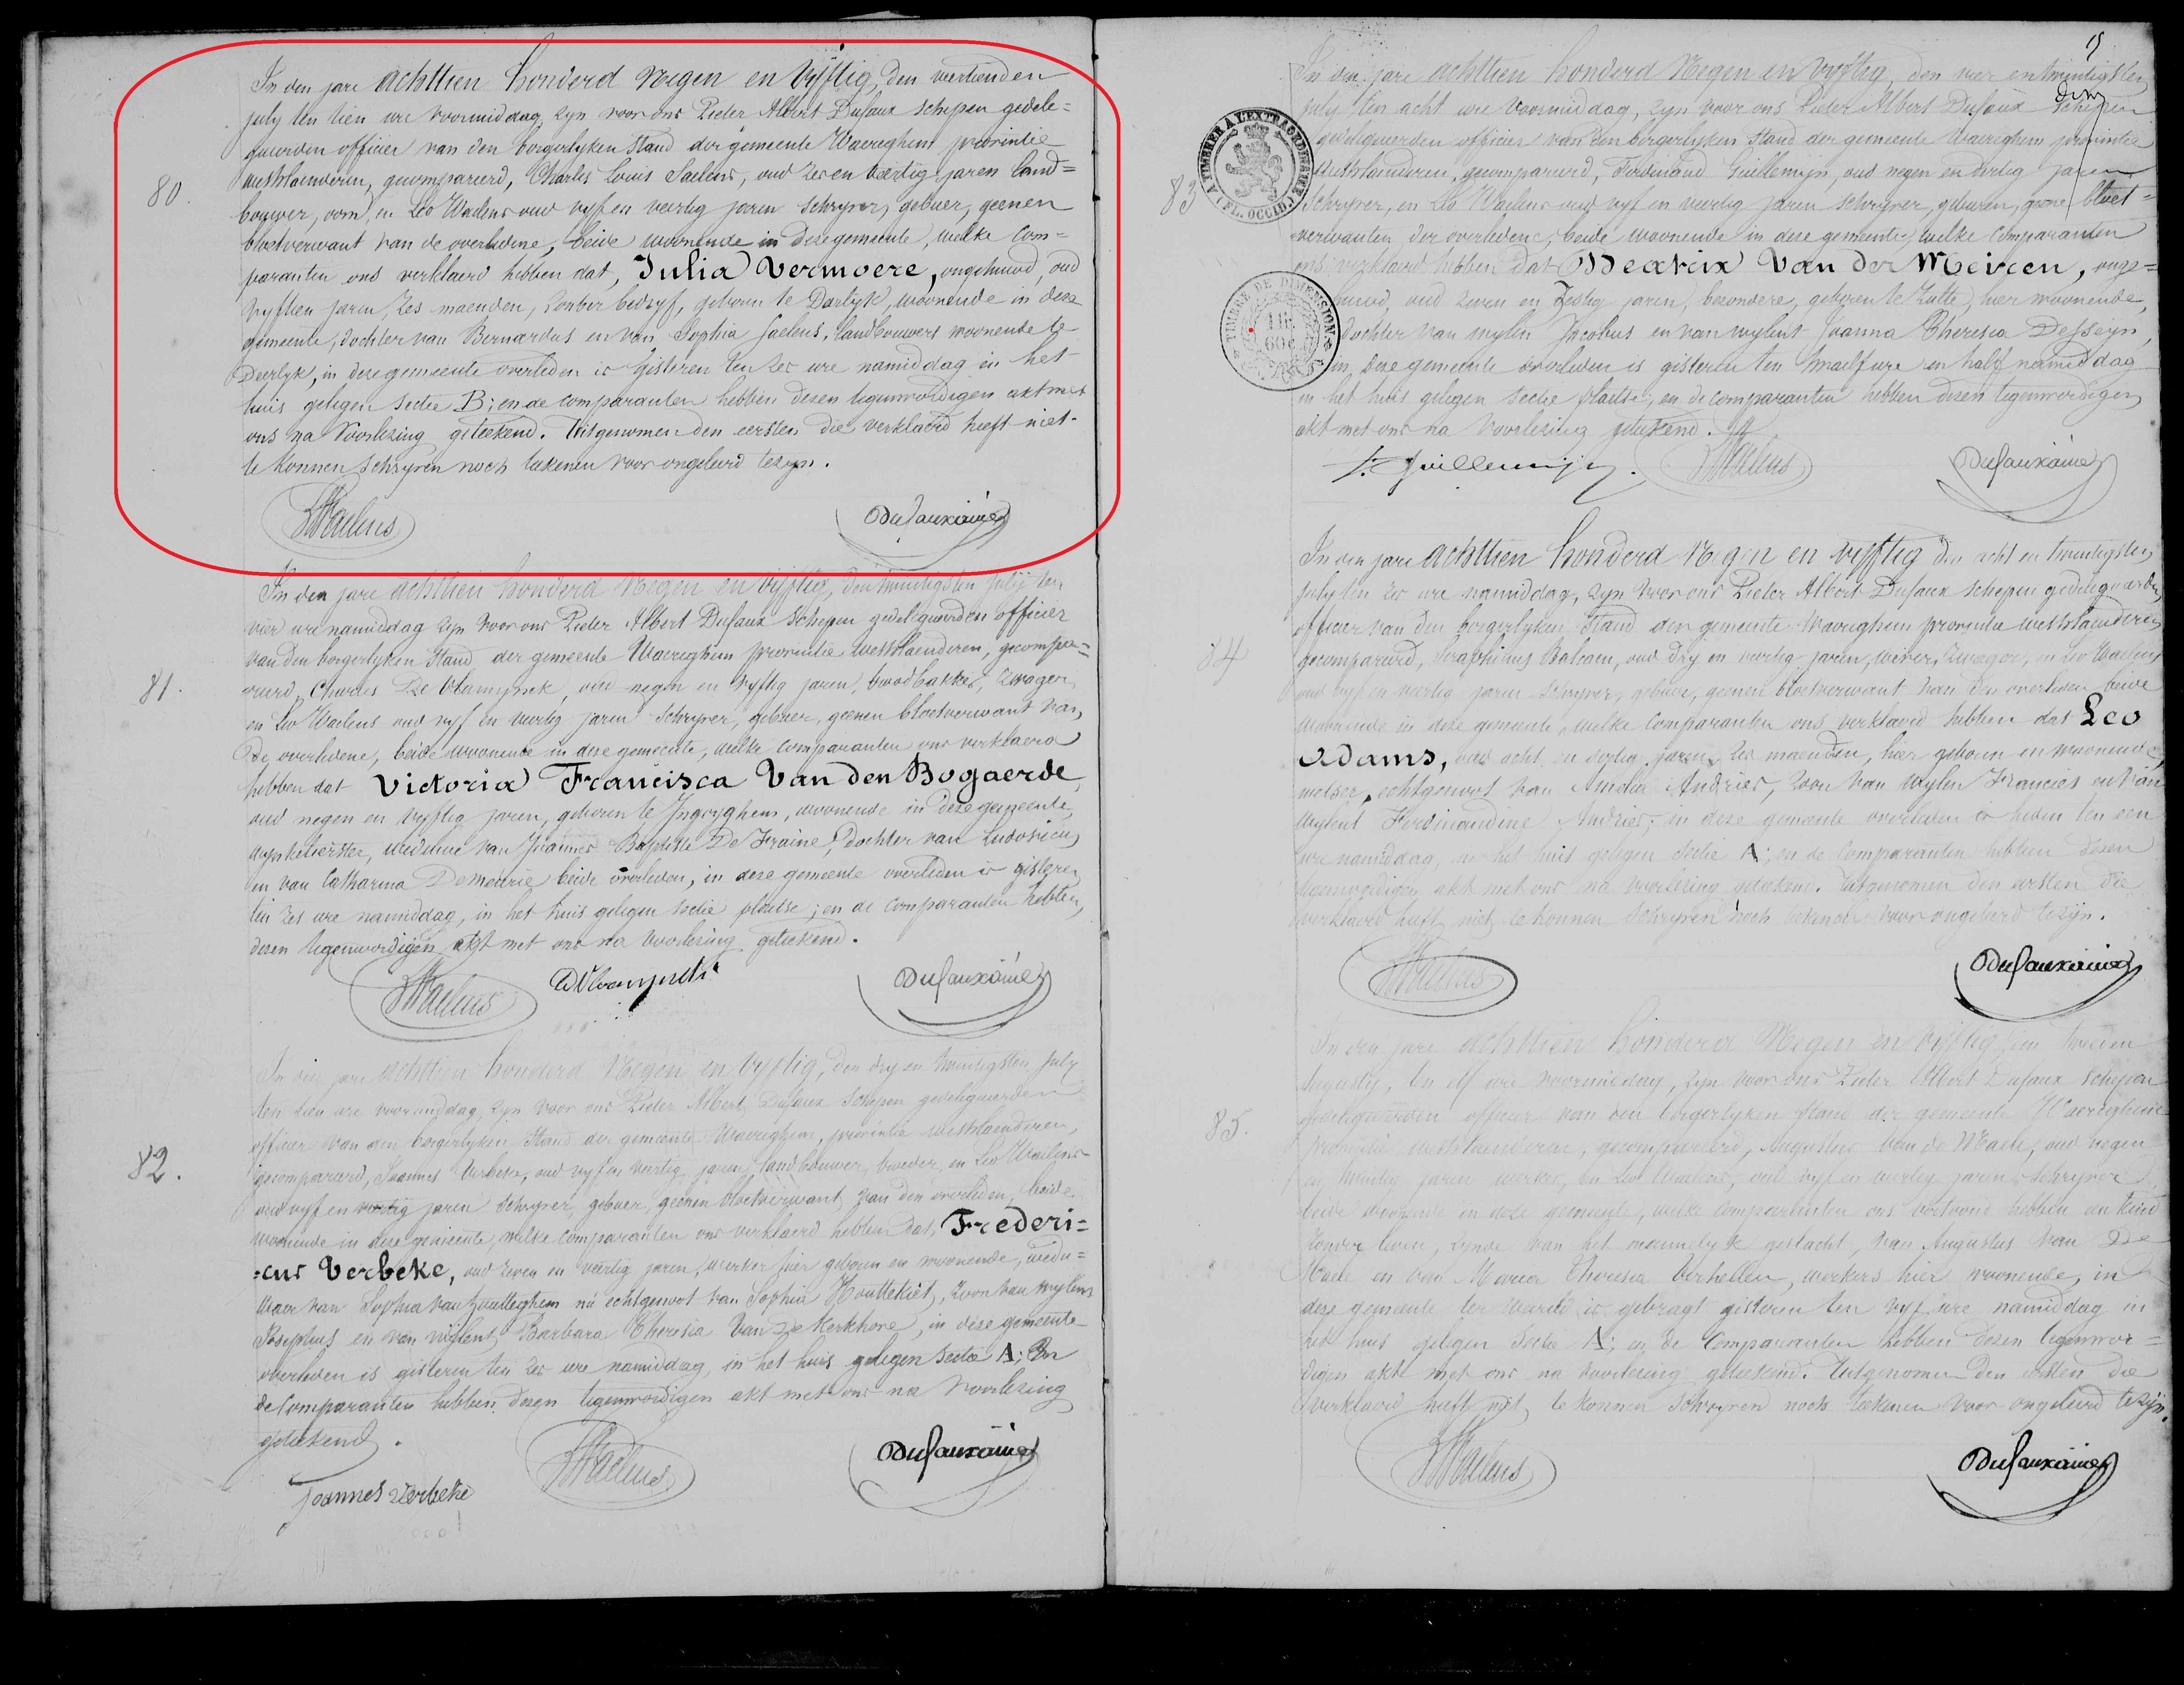 80.
In den jare achttien honderd Negen en Vyftig, den veertienden
july ten tien ure voormiddag, zyn voor ons Pieter Albert Dufaux schepen gedele=
gueerden officier van den borgerlyken stand der gemeente Waereghem provintie
westvlaenderen, gecompareerd, Charles Louis Saelens, oud zes en veertig jaren land=
bouwer, oom, en Leo Waelens oud vyf en veertig jaren schryver, gebuer, geenen
bloetverwant van de overledene, beide woonende in deze gemeente, welke Com=
paranten ons verklaerd hebben dat, Julia Vermoere, ongehuwd, oud
vyftien jaren, zes maenden, zonder bedryf, geboren te Deerlyk, woonende in deze
gemeente, dochter van Bernardus en van Sophia Saelens, landbouwers woonende te
Deerlyk, in deze gemeente overleden is gisteren ten zes ure namiddag in het
huis gelegen sectie B; en de comparanten hebben dezen tegenwoordigen akt met
ons na Voorlezing geteekend. Uitgenomen den eersten die verklaerd heeft niet
te konnen schryven noch teekenen voor ongeleerd te zyn.
LWaelens Dufauxainé
81.
In den jare achttien honderd Negen en Vyftig, den twintigsten july ten
vier ure namiddag zyn voor ons Pieter Albert Dufaux schepen gedelegueerden officier
van den borgerlyken stand der gemeente Waereghem provintie westvlaenderen, gecompa=
reerd, Charles De Vlamynck, oud negen en vyftig jaren, broodbakker, zwager,
en Leo Waelens oud vyf en veertig jaren schryver, gebuer, geenen bloetverwant van
de overledene, beide woonende in deze gemeente, welke comparanten ons verklaerd
hebben dat Victoria Francisca Van den Bogaerde,
oud negen en vyftig jaren, geboren te Ingoyghem, woonende in deze gemeente,
wynkelierster, weduwe van Joannes Baptiste De Fraine, dochter van Ludovicus
en van Catharina Demeurie beide overleden, in deze gemeente overleden is gisteren
ten zes ure namiddag, in het huis gelegen sectie plaetse; en de comparanten hebben
dezen tegenwoordigen akt met ons na voorlezing geteekend.
LWaelens Dufauxainé
82.
In den jare achttien honderd Negen en vyftig, den dry en twintigsten july
ten tien ure voormiddag, zyn voor ons Pieter Albert Dufaux schepen gedelegueerden
officier van den borgerlyken stand der gemeente Waereghem, provintie westvlaenderen,
gecompareerd, Joannes Verbeke, oud vyf en veertig jaren, landbouwer, broeder, en Leo Waelens
oud vyf en veertig jaren schryver, gebuer, geenen bloetverwant van den overleden, beide
woonende in deze gemeente, welke comparanten ons verklaerd hebben dat, Frederi=
=cus Verbeke, oud zeven en veertig jaren, werker hier geboren en woonende, wedu=
waer van Sophia Van Zoutteghem nu echtgenoot van Sophia Houttekiet, zoon van wylen
Josephus en van wylent Barbara Theresia Van De Kerkhove, in deze gemeente
overleden is gisteren ten zes ure namiddag, in het huis gelegen sectie A; En
de Comparanten hebben dezen tegenwoordigen akt met ons na voorlezing
geteekend.
Joannes Verbeke LWaelens Dufauxainé
15
A TIMBRER A L'EXTRAORDINAIRE
(FL. OCCID.)
TIMBRE DE DIMENSION
83
In den jare achttien honderd Negen en vyftig, den vier en twintigsten
july ten acht ure Voormiddag, zyn voor ons Pieter Albert Dufaux schepen
gedelegueerden officier van den borgerlyken stand der gemeente Waereghem provintie
Westvlaenderen, gecompareerd, Ferdinand Guillemyn, oud negen en dertig jaren
schryver, en Leo Waelens oud vyf en veertig jaren schryver, geburen, geene bloet=
verwanten der overledene, beide woonende in deze gemeente, welke Comparanten
ons verklaerd hebben dat Beatrix Van der Meiren, onge=
huwd, oud zeven en zestig jaren, bezondere, geboren te Zulte, hier woonende,
dochter van wylen Jacobus en van wylent Joanna Theresia Desseyn,
in deze gemeente overleden is gisteren ten twaelf ure en half namiddag
in het huis gelegen sectie plaetse; en de comparanten hebben dezen tegenwoordigen
akt met ons na Voorlezing geteekend.
F. Guillemyn. LWaelens Dufauxainé
84
In den jare achttien honderd Negen en vyftig den acht en twintigsten
july ten zes ure namiddag, zyn voor ons Pieter Albert Dufaux schepen gedelegueerden
officier van den borgerlyken stand der gemeente Waereghem provintie westvlaenderen
gecompareerd, Seraphinus Balcaen, oud dry en veertig jaren, wever, zwager, en Leo Waelens
oud vyf en veertig jaren schryver, gebuer, geenen bloetverwant van den overleden beide
woonende in deze gemeente, welke Comparanten ons verklaerd hebben dat Leo
Adams, oud acht en dertig jaren zes maenden, hier geboren en woonende,
metser, echtgenoot van Amelia Andries, zoon van wylen Francies en van
wylent Ferdinandine Andries, in deze gemeente overleden is heden ten een
ure namiddag, in het huis gelegen sectie A; en de Comparanten hebben dezen
tegenwoordigen akt met ons na voorlezing geteekend. Uitgenomen den eersten die
verklaerd heeft niet te konnen schryven noch teekenen voor ongeleerd te zyn.
LWaelens Dufauxainé
85.
In den jare achttien honderd Negen en vyftig, den tweeen
Augusty, ten elf ure voormiddag, zyn voor ons Pieter Albert Dufaux schepen
gedelegueerden officier van den borgerlyken stand der gemeente Waereghem
provintie westvlaenderen, gecompareerd, Augustus Van de Maele, oud negen
en twintig jaren werker, en Leo Waelens, oud vyf en veertig jaren schryver
beide woonende in deze gemeente, welke comparanten ons vertoond hebben een kind
zonder leven, zynde van het mannelyk geslacht, van Augustus Van De
Maele en van Maria Theresia Verhellen, werkers hier woonende, in
deze gemeente ter wereld is gebragt gisteren ten vyf ure namiddag in
het huis gelegen Sectie A; en de Comparanten hebben dezen tegenwoor=
digen akt met ons na voorlezing geteekend. Uitgenomen den eersten die
verklaerd heeft niet te konnen schryven noch teekenen voor ongeleerd te zyn.
LWaelens Dufauxainé